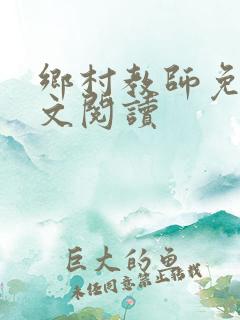 鄉村教師免
文閱讀
巨大的鱼
未经同意禁止转载